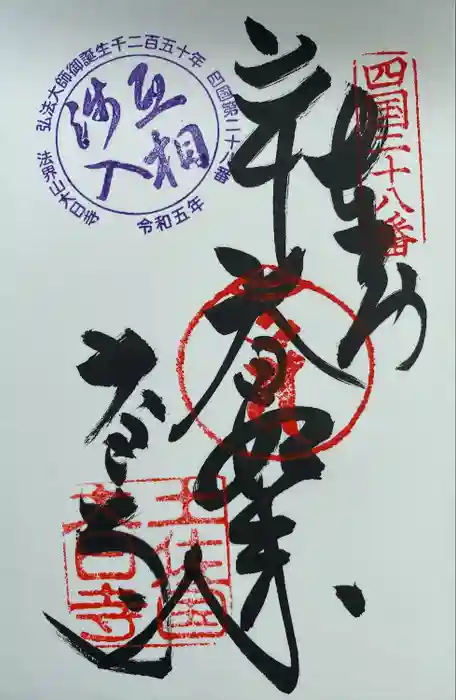 四国二十八番
奉拝
大日如来
大日寺
弘法大師御誕生千二百五十年 四國第二十八番
互相
渉入
法界山大日寺
令和五年
土佐国
大日寺